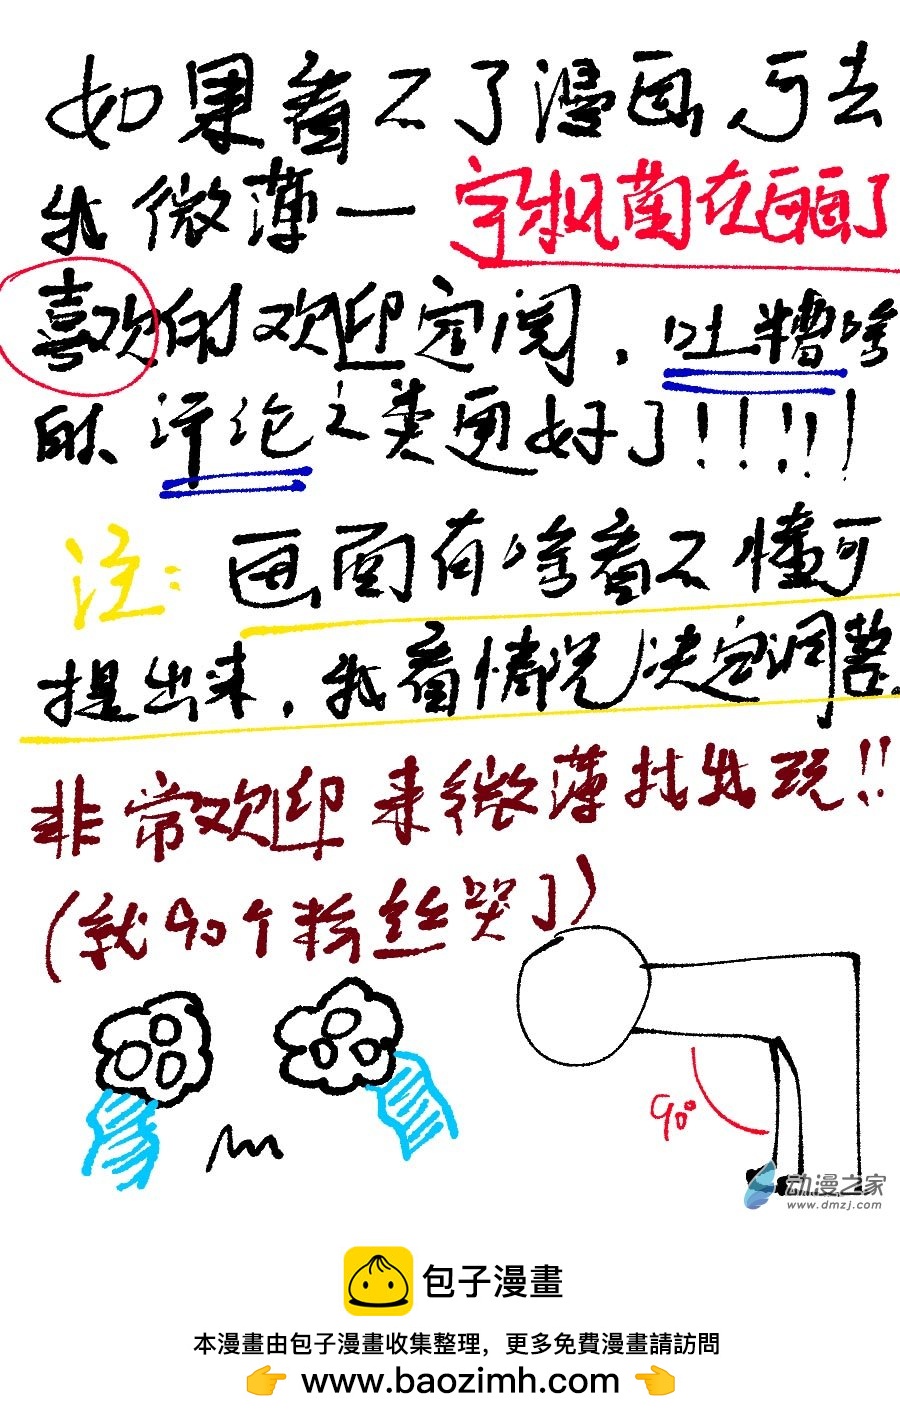 如果看不了漫画,可去
我微薄一宇枫菌在画画了
喜欢的欢迎定阅,吐糟啥
的、评论之类更好了!!!!!
注:画面有啥看不懂可
提出来,我看情况决定调整.
非常欢迎来微薄找我玩!!
(就90个粉丝哭了)
90°
动漫之家
www.dmzj.com
包子漫畫
本漫畫由包子漫畫收集整理,更多免費漫畫請訪問
👉 www.baozimh.com 👈